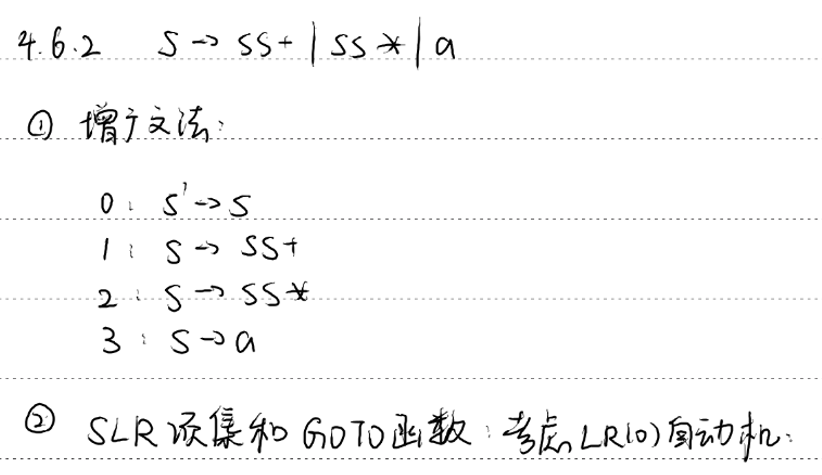 4.6.2 S → SS+ | SS* | a
① 增广文法:
0: S' → S
1: S → SS+
2: S → SS*
3: S → a
② SLR 项集和 GOTO函数: 考虑LR(0)自动机: